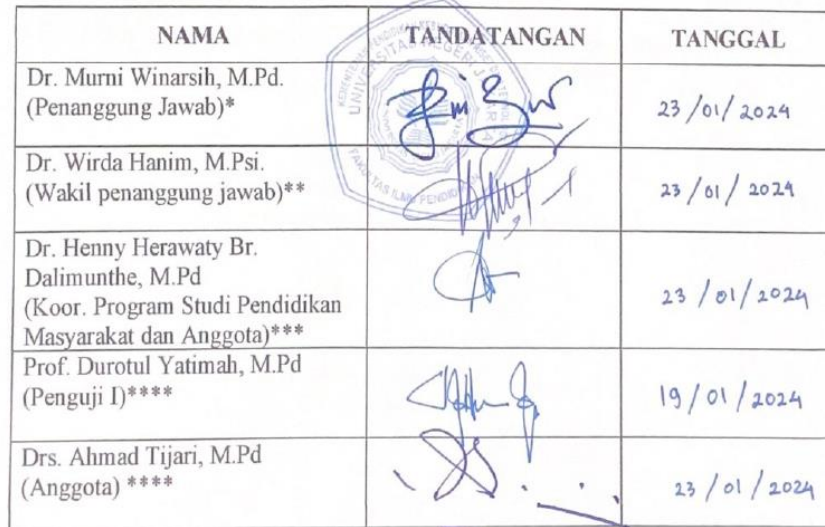 NAMA
TANDATANGAN
TANGGAL
Dr. Murni Winarsih, M.Pd.
(Penanggung Jawab)*
23/01/2024
Dr. Wirda Hanim, M.Psi.
(Wakil penanggung jawab)**
23/01/2024
Dr. Henny Herawaty Br.
Dalimunthe, M.Pd
(Koor. Program Studi Pendidikan
Masyarakat dan Anggota)***
23/01/2024
Prof. Durotul Yatimah, M.Pd
(Penguji I)****
19/01/2024
Drs. Ahmad Tijari, M.Pd
(Anggota) ****
23/01/2024
UNIVERSITAS NEGERI
FAKULTAS ILMU PENDIDIKAN